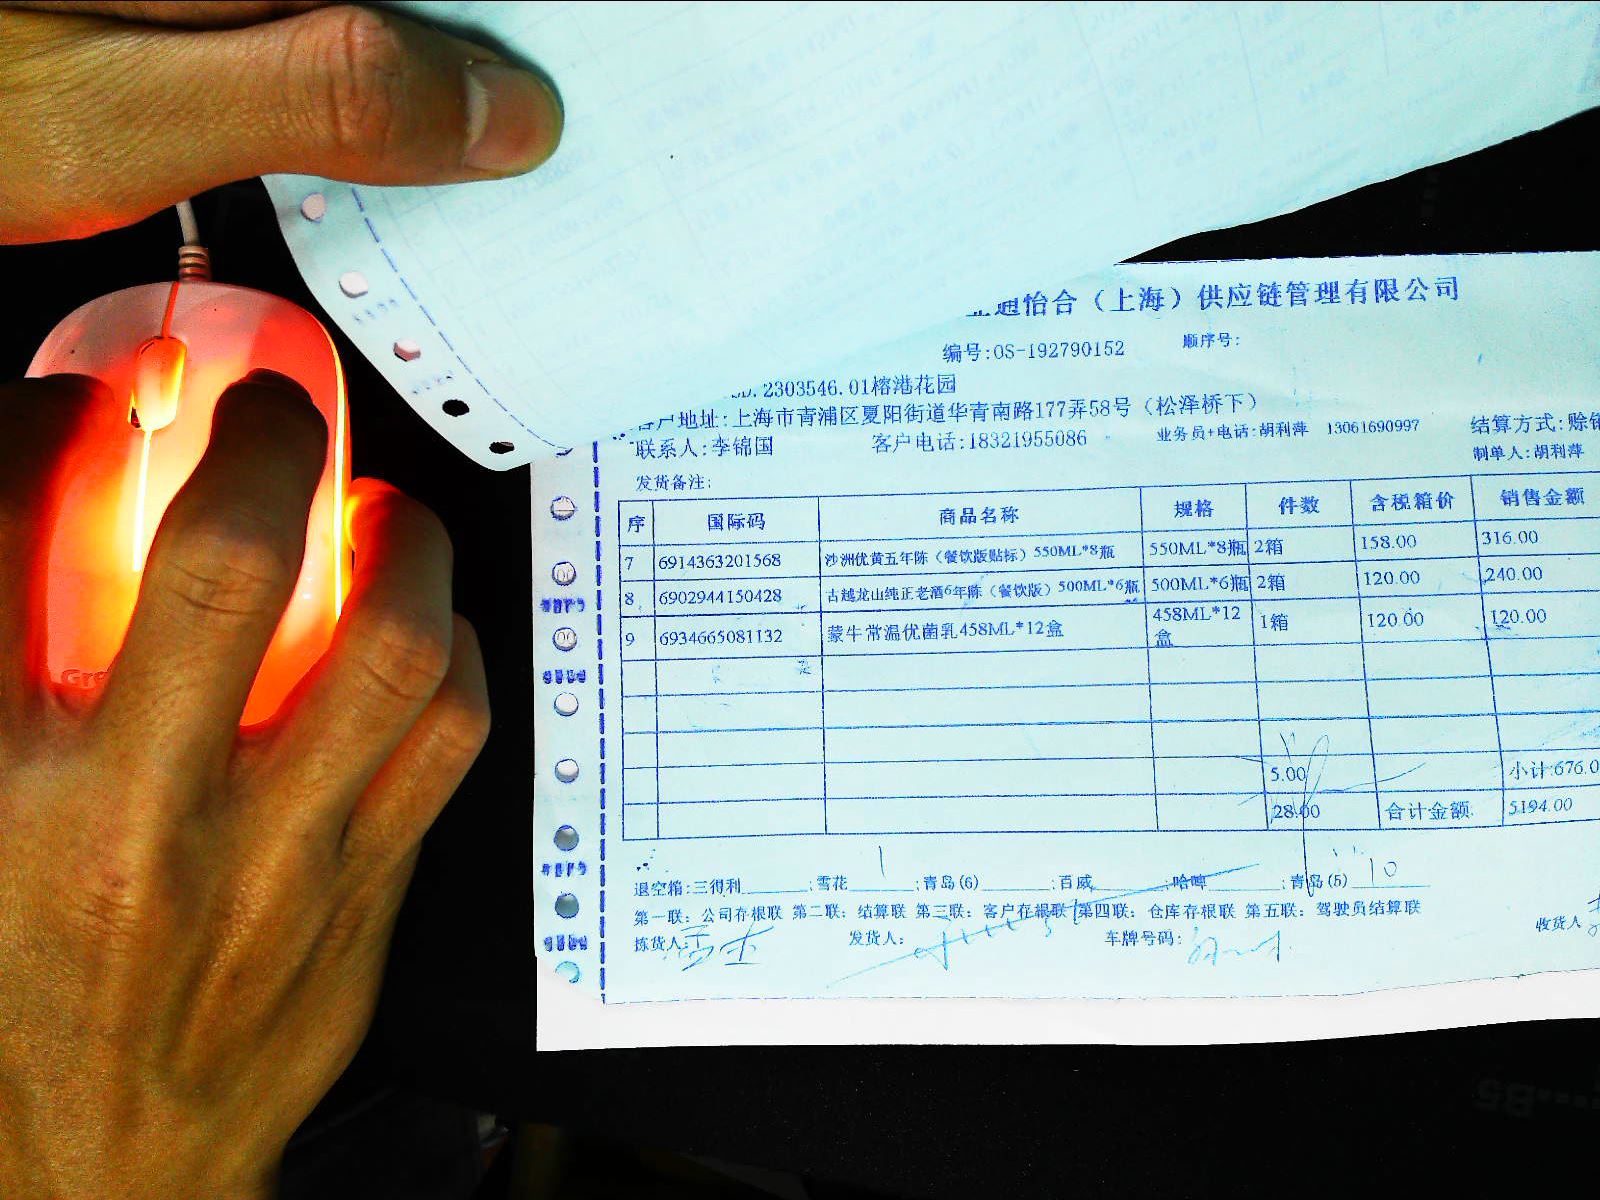 通怡合（上海）供应链管理有限公司
编号:OS-192790152 顺序号:
.2303546.01榕港花园
客户地址:上海市青浦区夏阳街道华青南路177弄58号（松泽桥下）
联系人:李锦国 客户电话:18321955086 业务员+电话:胡利萍 13061690997 结算方式:赊销
制单人:胡利萍
发货备注:
序 国际码 商品名称 规格 件数 含税箱价 销售金额
7 6914363201568 沙洲优黄五年陈（餐饮版贴标）550ML*8瓶 550ML*8瓶 2箱 158.00 316.00
8 6902944150428 古越龙山纯正老酒6年陈（餐饮版）500ML*6瓶 500ML*6瓶 2箱 120.00 240.00
9 6934665081132 蒙牛常温优菌乳458ML*12盒 458ML*12盒 1箱 120.00 120.00
5.00 小计:676.0
28.00 合计金额: 5194.00
退空箱:三得利______;雪花 1;青岛(6)______;百威______;哈啤______;青岛(5) 10
第一联：公司存根联 第二联：结算联 第三联：客户存根联 第四联：仓库存根联 第五联：驾驶员结算联
拣货人: 发货人: 车牌号码: 收货人
Gre